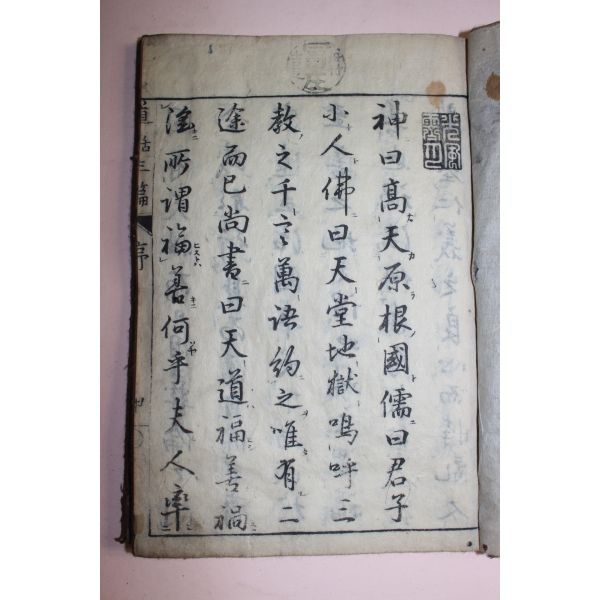 神曰高天原根國儒曰君子
小人佛曰天堂地獄嗚呼三
教之千言萬語約之唯有二
途而已尚書曰天道福善禍
淫所謂福善何乎夫人率
道話三篇 序